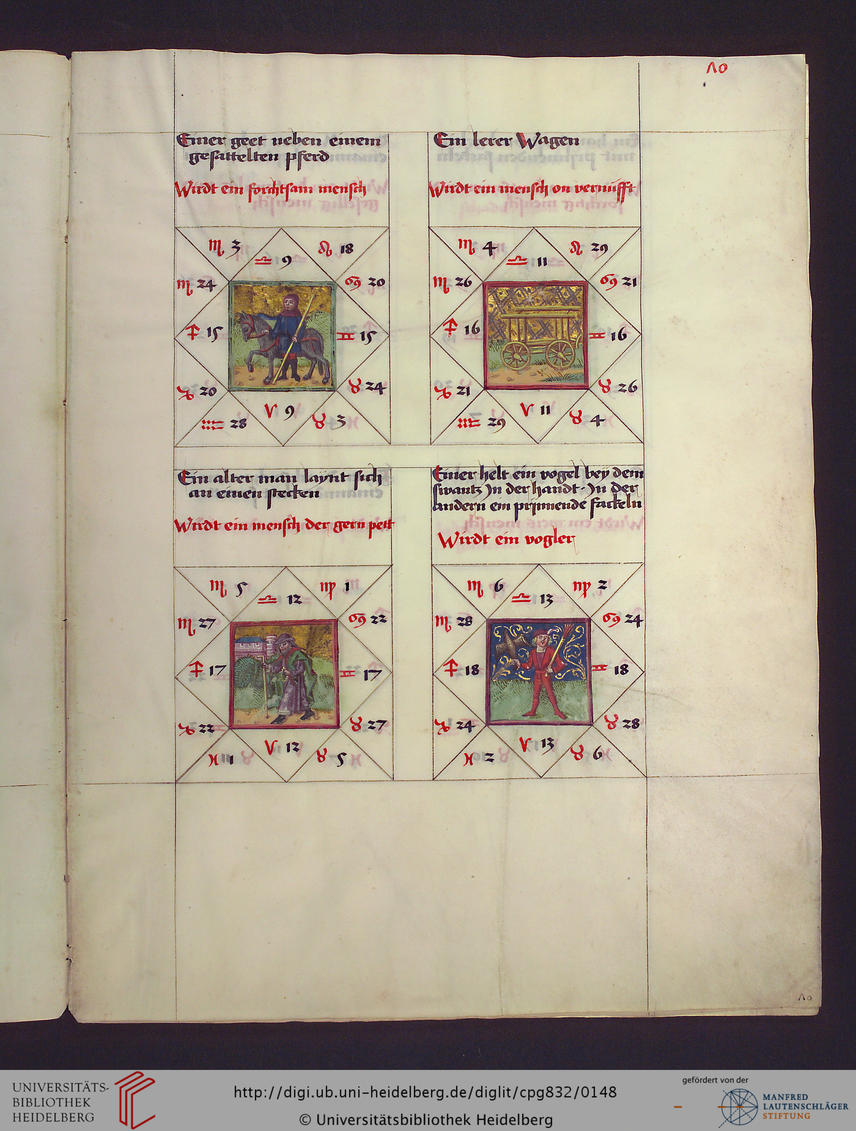 Λ0
Einer geet neben einem
gesattelten pferd
Wirdt ein forchtsam mensch
♏ 3 ♎ 9 ♌ 18
♏ 24 ♋ 20
♐ 15 ♊ 15
♑ 20 ♉ 24
♒ 28 ♈ 9 ♉ 3
Ein lerer Wagen
Wirdt ein mensch on vernufft
♏ 4 ♎ 11 ♌ 29
♏ 26 ♋ 21
♐ 16 ♊ 16
♑ 21 ♉ 26
♒ 29 ♈ 11 ♉ 4
Ein alter man laynt sich
an einen stecken
Wirdt ein mensch der gern pett
♏ 5 ♎ 12 ♍ 1
♏ 27 ♋ 22
♐ 17 ♊ 17
♑ 22 ♉ 27
♓ 1 ♈ 12 ♉ 5
Einer helt ein vogel bey dem
swantz In der handt· In der
andern ein prinnende fackeln
Wirdt ein vogler
♏ 6 ♎ 13 ♍ 2
♏ 28 ♋ 24
♐ 18 ♊ 18
♑ 24 ♉ 28
♓ 2 ♈ 13 ♉ 6
Λ0
UNIVERSITÄTS-
BIBLIOTHEK
HEIDELBERG
http://digi.ub.uni-heidelberg.de/diglit/cpg832/0148
© Universitätsbibliothek Heidelberg
gefördert von der
MANFRED
LAUTENSCHLÄGER
STIFTUNG